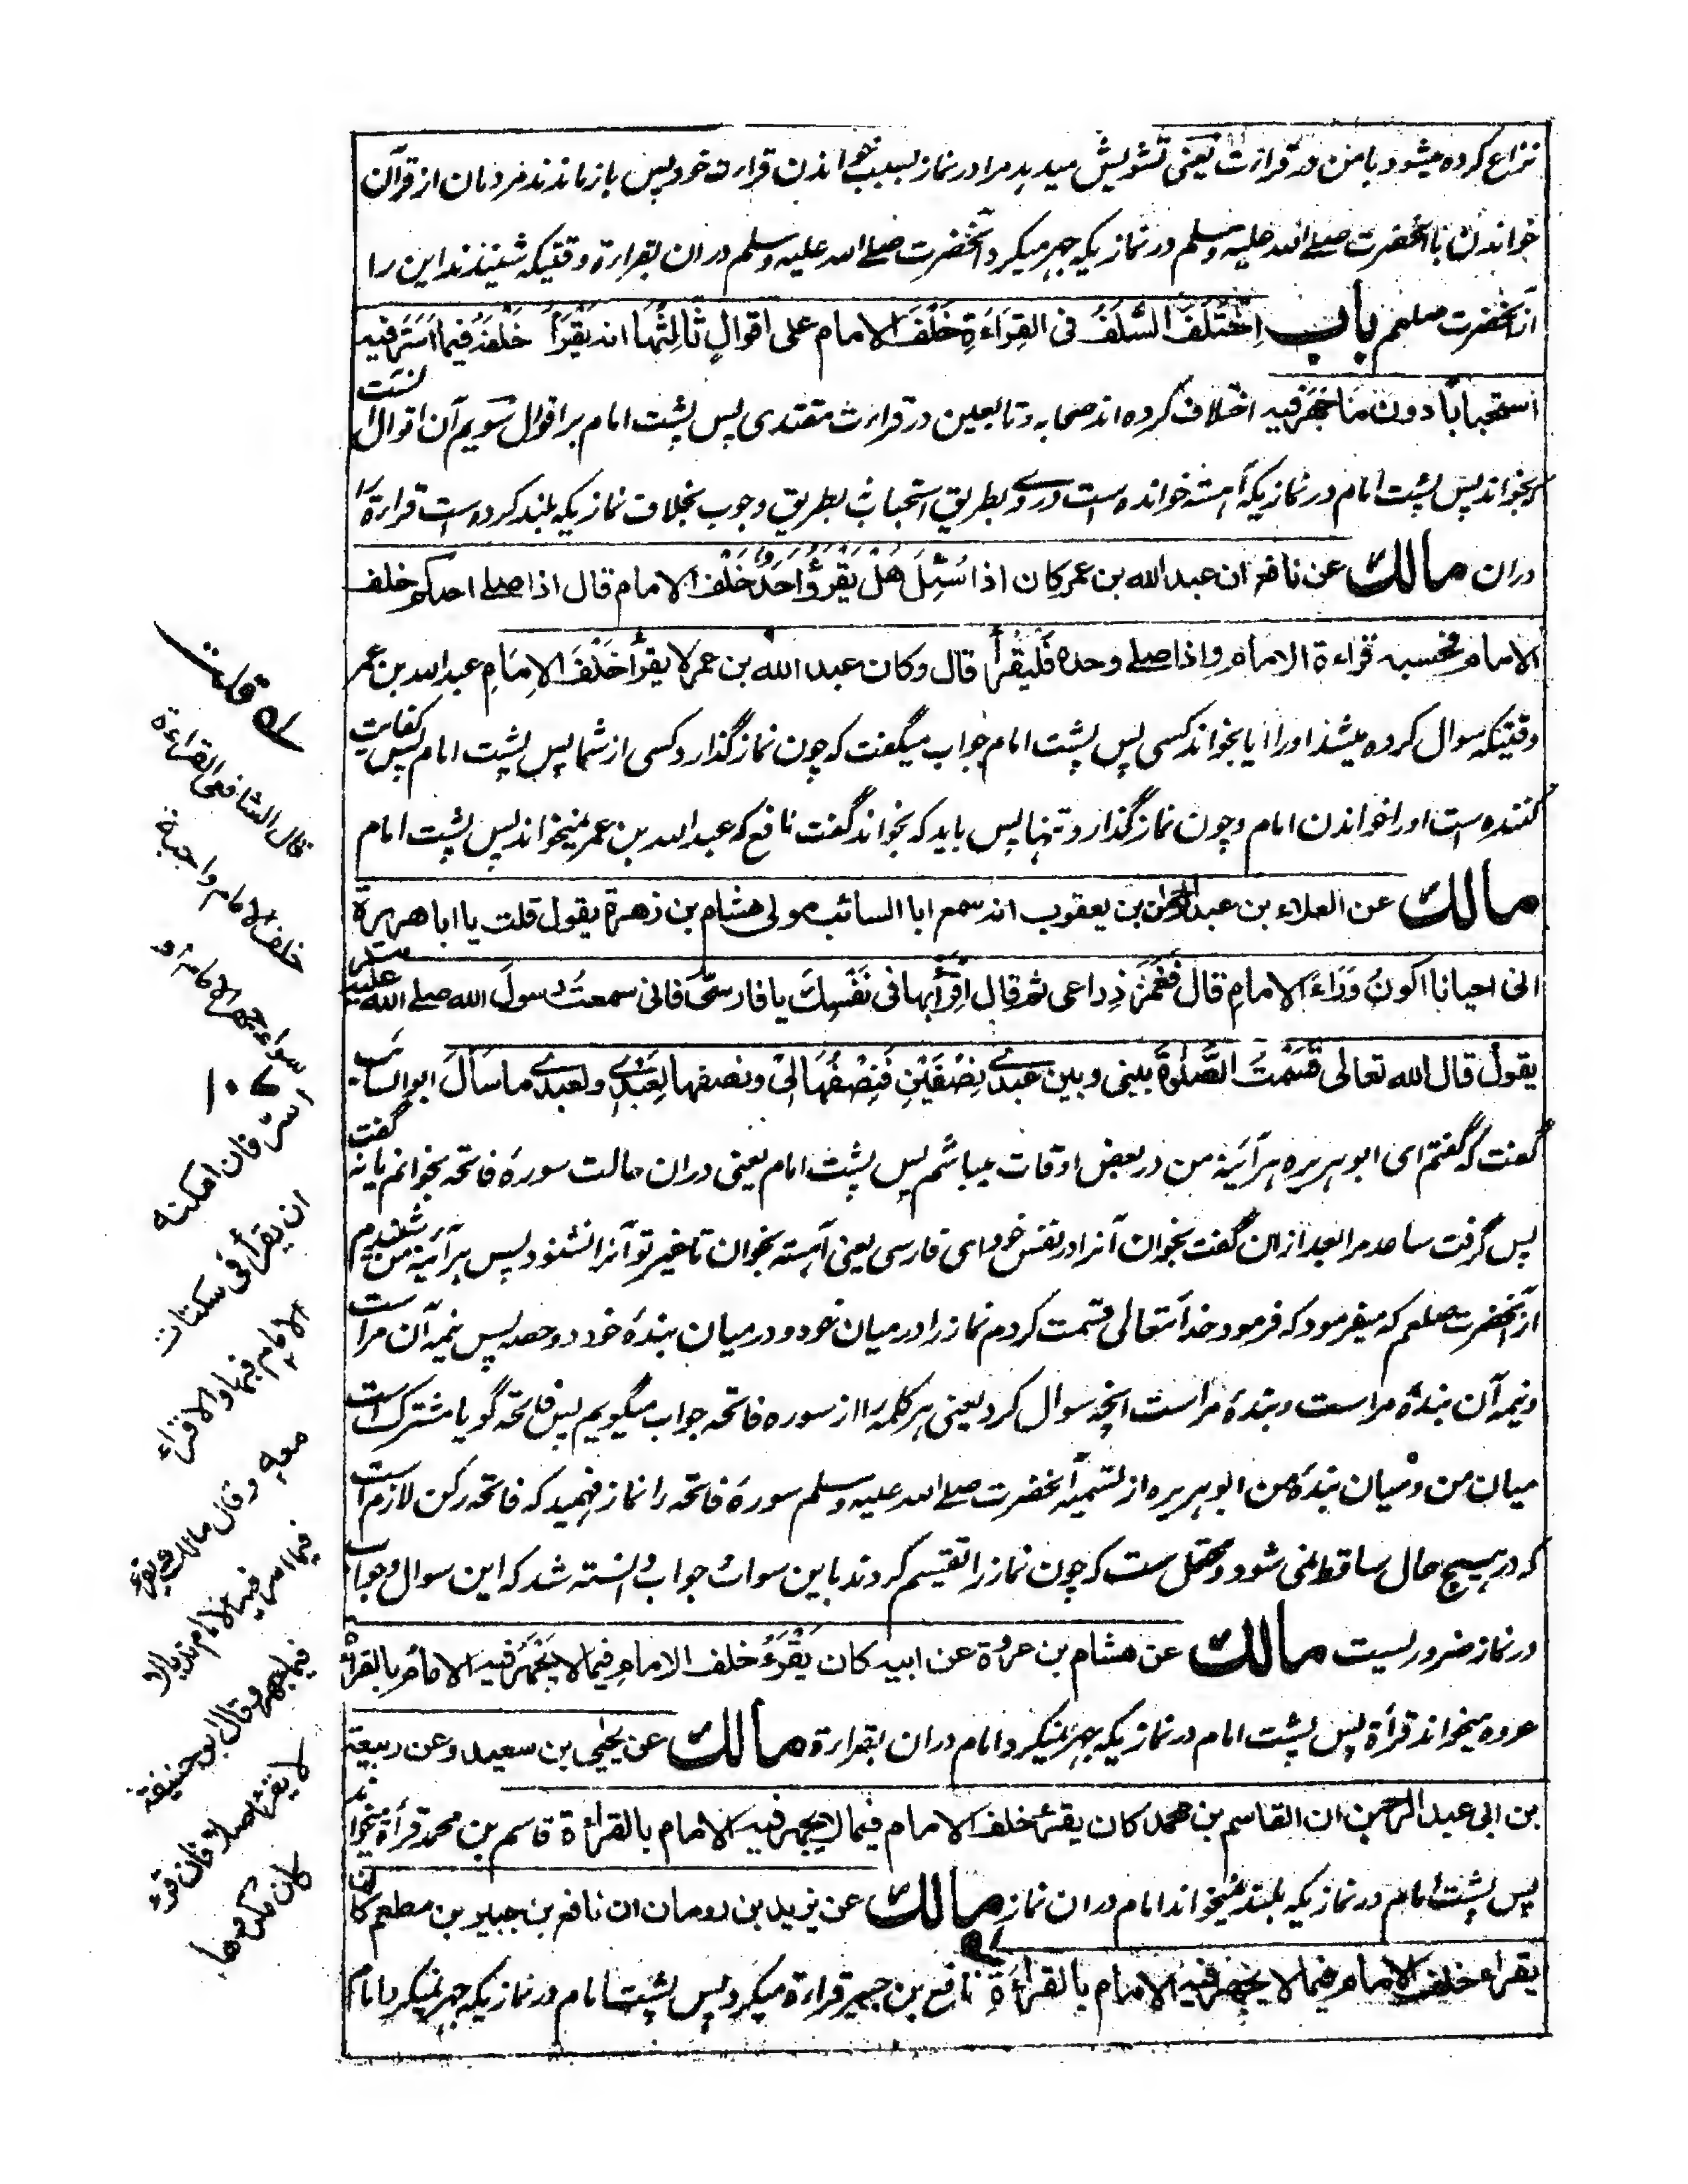 نزاع کرده میشود با من در قراءت یعنی تشویش میدهد مرا در نماز بسبب خواندن قراءت خود پس باز ماندند مردمان از قرآن
خواندن با آنحضرت صلے الله علیه وسلم در نمازیکه جهر میکرد آنحضرت صلے الله علیه وسلم دران بقراءة وقتیکه شنیدند این را
از آنحضرت صلعم باب اِختَلَفَ السَّلَفُ فی القِرَاءَةِ خَلْفَ الامام علی اقوالٍ ثَالِثُهَا انه یَقْرَأُ خَلْفَهٗ فیما اَسَرَّ فیه
استحباباً دون مَا جَهَرَ فیه اختلاف کرده اند صحابه وتابعین در قراءت مقتدی پس پشت امام بر اقوال سویم آن اقوال آنست
که بخواند پس پشت امام در نمازیکه آهسته خوانده است دروے بطریق استحباب نه بطریق وجوب بخلاف نمازیکه بلند کرده است قراءة را
دران مالك عن نافع ان عبد الله بن عمر کان اذا سُئِلَ هَلْ یَقْرَؤُ اَحَدٌ خَلْفَ الامام قال اذا صلے احدکم خلف
الامام فحسبه قراءة الامام واذا صلے وحده فَلْیَقْرَأْ قال وکان عبد الله بن عمر لا یَقْرَأُ خَلْفَ الاِمَامِ عبد الله بن عمر
وقتیکه سوال کرده میشد او را آیا بخواند کسی پس پشت امام جواب میگفت که چون نماز گذارد کسی از شما پس پشت امام پس کفایت
کننده است او را خواندن امام وچون نماز گذارد تنها پس باید که بخواند گفت نافع که عبد الله بن عمر نمیخواند پس پشت امام
مالك عن العلاء بن عبد الرحمٰن بن یعقوب انه سمع ابا السائب مولی هشام بن زهرة یقول قلت یا ابا هریرة
انی احیانا اکونُ وَرَاءَ الامامِ قال فَغَمَزَ ذِراعی ثم قال اِقْرَأْ بها فی نَفْسِكَ یا فارسیُّ فانی سمعتُ رسولَ الله صلے الله علیه وسلم
یقول قال الله تعالی قَسَمْتُ الصَّلٰوةَ بینی وبین عبدے نِصْفَیْنِ فَنِصْفُهَا لی ونصفها لِعَبْدِے ولعبدے ما سَأَلَ ابو السائب
گفت که گفتم ای ابو هریره هر آئینه من در بعض اوقات میباشم پس پشت امام یعنی دران حالت سورهٔ فاتحه بخوانم یا نه گفت
پس گرفت ساعد مرا بعد ازان گفت بخوان آنرا در نفس خود ای فارسی یعنی آهسته بخوان تا غیر تو آنرا نشنود پس هر آئینه من شنیدم
از آنحضرت صلعم که میفرمود که فرمود خدا تعالی قسمت کردم نماز را درمیان خود ودرمیان بندهٔ خود دو حصه پس نیمه آن مراست
ونیمه آن بندهٔ مراست وبندهٔ مراست آنچه سوال کرد یعنی هر کلمه را از سوره فاتحه جواب میگویم پس فاتحه گویا مشترك است
میان من ومیان بندهٔ من ابو هریره از تسمیه آنحضرت صلے الله علیه وسلم سورهٔ فاتحه را نماز فهمید که فاتحه رکن لازم است
که در هیچ حال ساقط نمی شود ومحتمل ست که چون نماز را تقسیم کردند باین سوال وجواب دانسته شد که این سوال وجواب
در نماز ضروریست مالك عن هشام بن عروة عن ابیه کان یَقْرَءُ خلف الامامِ فیما لا یَجْهَرُ فیه الامامُ بالقراءة
عروه میخواند قرأة پس پشت امام در نمازیکه جهر نمیکرد امام دران بقراءة مالك عن یحیٰی بن سعید وعن ربیعة
بن ابی عبد الرحمن ان القاسم بن محمد کان یقرء خلف الامام فیما لا یجهر فیه الامام بالقراءة قاسم بن محمد قرأة میخواند
پس پشت امام در نمازیکه بلند نمیخواند امام دران نماز مالك عن یزید بن رومان ان نافع بن جبیر بن مطعم کان
یقراء خلف الامام فیما لا یجهر فیه الامام بالقراءَةِ نافع بن جبیر قراءة میکرد پس پشت امام در نمازیکه جهر نمیکرد امام
قلت
قال الشافعی القراءة
خلف الامام واجبة
سواء جهر الامام او
اسر فان امکنه
ان یقرأ فی سکتات
الامام فبها والا قراء
معه وقال مالك یقرء
فیما اسر فیه الامام ندبا لا
فیما جهر وقال ابو حنیفة
لا یقرء اصلا فان قرء
کان مکروها